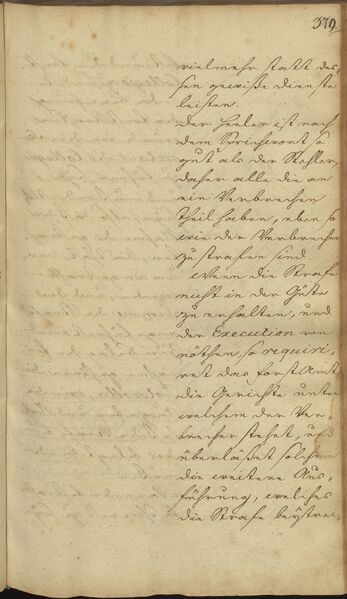 379.
vielmehr statt des-
sen gewiße dienste
leisten.
Der Heeler ist nach
dem Sprichwort so
gut als der Stehler,
daher alle die an
ein Verbrechen
Theil haben, eben so
wie der Verbrecher
zu strafen sind
Wenn die Strafe
nicht in der Güte
zu erhalten, und
der Execution von
nöthen, so requiri-
ret das forst Amt
die Gerichte unter
welchem der Ver-
brecher stehet, und
überläßet solchen
die weitere Aus-
führung, welches
die Strafe beytrei-